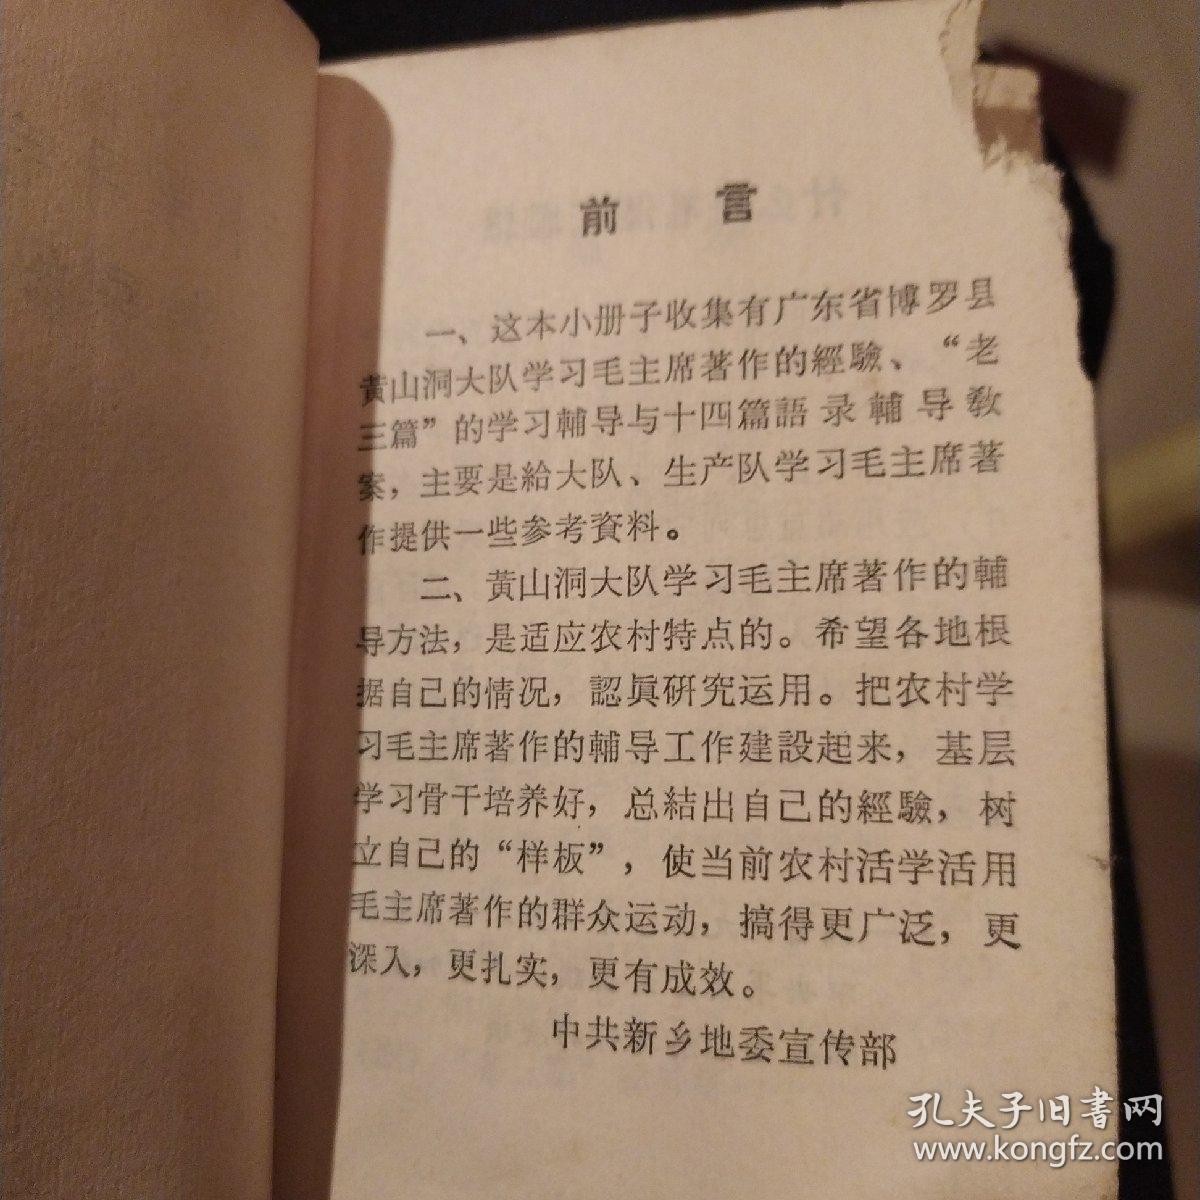 前言
一、这本小册子收集有广东省博罗县
黄山洞大队学习毛主席著作的經驗、“老
三篇”的学习輔导与十四篇語录輔导教
案，主要是給大队、生产队学习毛主席著
作提供一些参考資料。
二、黄山洞大队学习毛主席著作的輔
导方法，是适应农村特点的。希望各地根
据自己的情况，認眞研究运用。把农村学
习毛主席著作的輔导工作建設起来，基层
学习骨干培养好，总結出自己的經驗，树
立自己的“样板”，使当前农村活学活用
毛主席著作的群众运动，搞得更广泛，更
深入，更扎实，更有成效。
中共新乡地委宣传部
孔夫子旧書网
www.kongfz.com